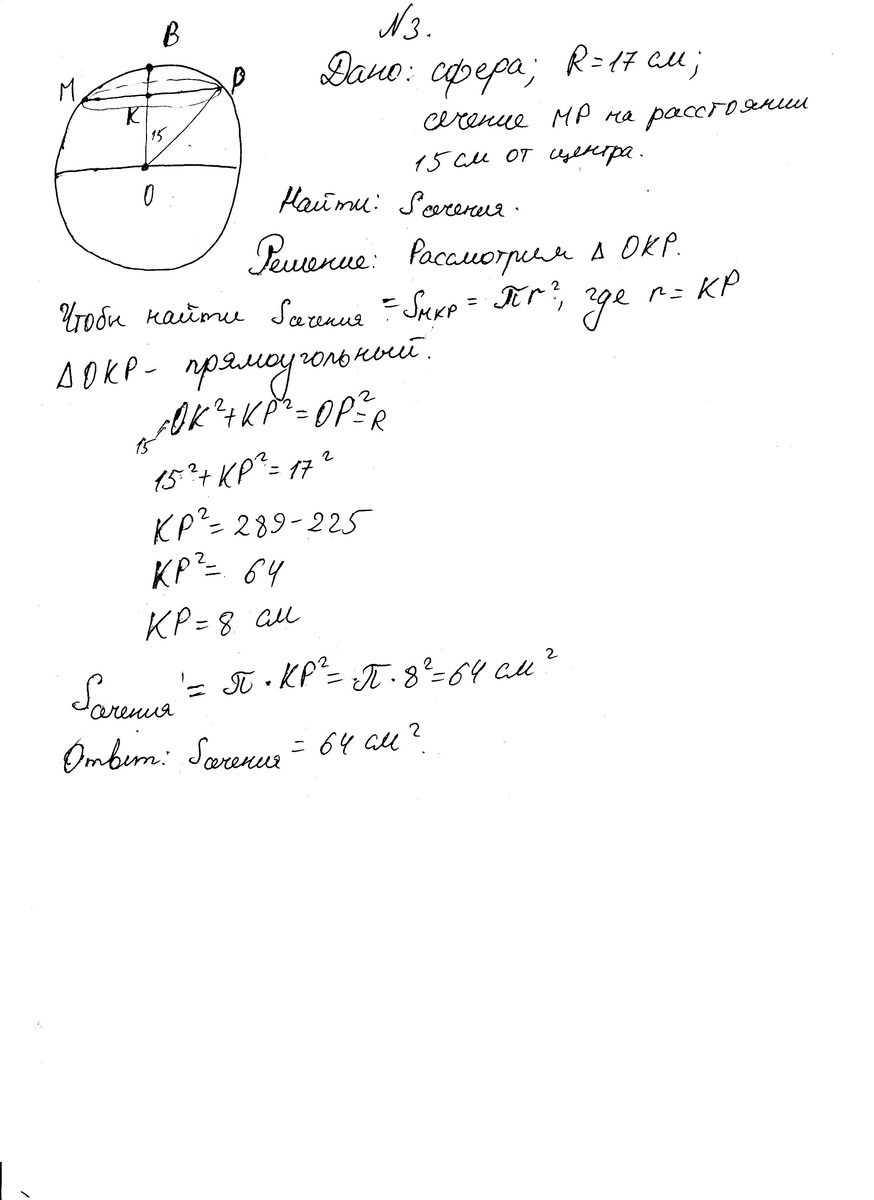 N3.
B
Дано: сфера; R=17 см;
M
P
K
сечение MP на расстоянии
15
15 см от центра.
O
Найти: Sсечения.
Решение: Рассмотрим Δ OKP.
Чтобы найти Sсечения = SMKP = πr², где r = KP
ΔOKP - прямоугольный.
15 OK²+KP²=OP²=R
15²+KP²=17²
KP²=289-225
KP²= 64
KP=8 см
Sсечения = π·KP²=π·8²=64 см²
Ответ: Sсечения = 64 см².